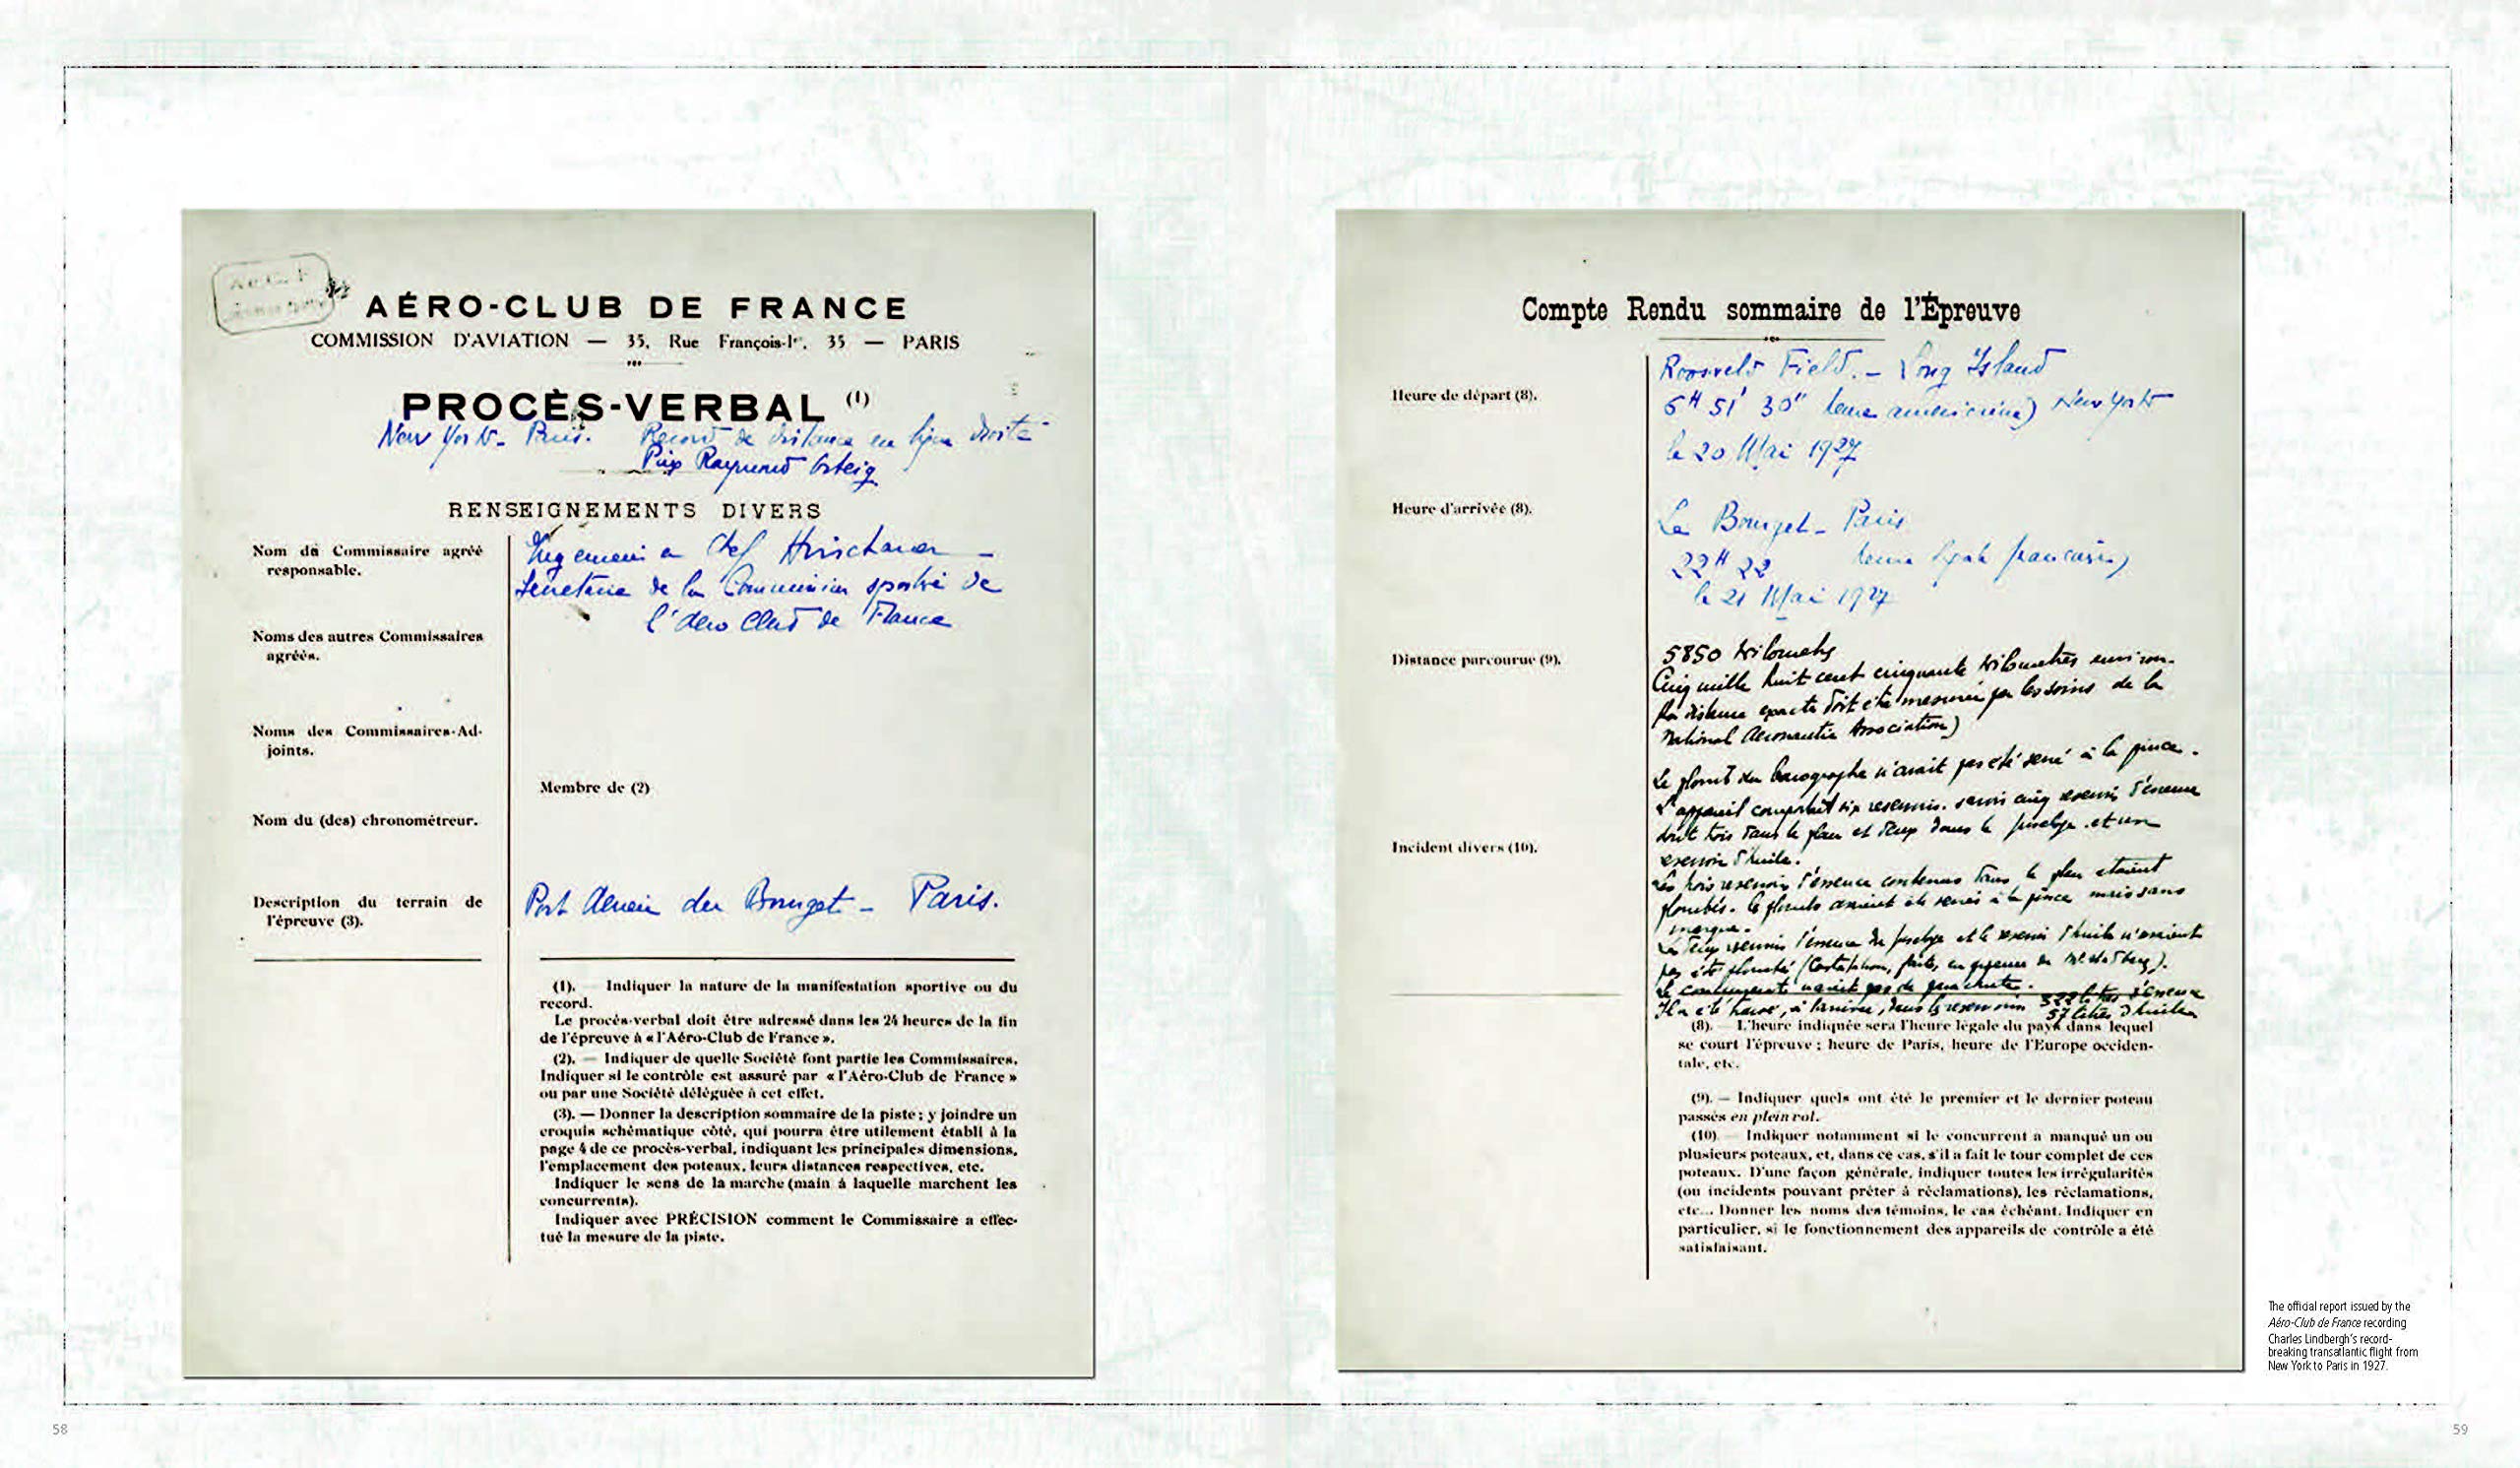 AÉRO-CLUB DE FRANCE
COMMISSION D'AVIATION — 35, Rue François-Ier, 35 — PARIS
PROCÈS-VERBAL (1)
New York - Paris. Record de distance en ligne droite
Prix Raymond Orteig
RENSEIGNEMENTS DIVERS
Nom du Commissaire agréé
responsable.
Ingénieur en Chef Hirschauer —
Secrétaire de la Commission sportive de
l'Aéro Club de France
Noms des autres Commissaires
agréés.
Noms des Commissaires-Ad-
joints.
Membre de (2)
Nom du (des) chronométreur.
Description du terrain de
l'épreuve (3).
Port Aérien du Bourget - Paris.
(1). Indiquer la nature de la manifestation sportive ou du
record.
Le procès-verbal doit être adressé dans les 24 heures de la fin
de l'épreuve à « l'Aéro-Club de France ».
(2). — Indiquer de quelle Société font partie les Commissaires.
Indiquer si le contrôle est assuré par « l'Aéro-Club de France »
ou par une Société déléguée à cet effet.
(3). — Donner la description sommaire de la piste ; y joindre un
croquis schématique côté, qui pourra être utilement établi à la
page 4 de ce procès-verbal, indiquant les principales dimensions,
l'emplacement des poteaux, leurs distances respectives, etc.
Indiquer le sens de la marche (main à laquelle marchent les
concurrents).
Indiquer avec PRÉCISION comment le Commissaire a effec-
tué la mesure de la piste.
58
Compte Rendu sommaire de l'Épreuve
Heure de départ (8).
Roosvelt Field. - Long Island
6H 51' 30" heure américaine) New York
le 20 Mai 1927
Heure d'arrivée (8).
Le Bourget - Paris
22H 22 heure légale française)
le 21 Mai 1927
Distance parcourue (9).
5850 kilometres
Cinq mille huit cent cinquante kilometres environ.
(La distance exacte doit être mesurée par les soins de la
National Aeronautic Association)
Incident divers (10).
Le plomb du barographe n'avait pas été serré à la pince.
L'appareil comportait six reservoirs. savoir cinq reservoirs d'essence
dont trois dans le plan et deux dans le fuselage et un
reservoir d'huile.
Les trois reservoirs d'essence contenus dans le plan etaient
plombés. les plombs avaient été serrés à la pince mais sans
marque.
Les deux reservoirs d'essence du fuselage et le reservoir d'huile n'avaient
pas été plombés (Constatations faites en présence de Mr Lindberg).
Le concurrent n'avait pas de parachute.
Il a été trouvé, à l'arrivée, dans les reservoirs 322 litres d'essence
57 litres d'huile
(8). — L'heure indiquée sera l'heure légale du pays dans lequel
se court l'épreuve ; heure de Paris, heure de l'Europe occiden-
tale, etc.
(9). — Indiquer quels ont été le premier et le dernier poteau
passés en plein vol.
(10) — Indiquer notamment si le concurrent a manqué un ou
plusieurs poteaux, et, dans ce cas, s'il a fait le tour complet de ces
poteaux. D'une façon générale, indiquer toutes les irrégularités
(ou incidents pouvant prêter à réclamations), les réclamations,
etc... Donner les noms des témoins, le cas échéant. Indiquer en
particulier, si le fonctionnement des appareils de contrôle a été
satisfaisant.
The official report issued by the
Aéro-Club de France recording
Charles Lindbergh's record-
breaking transatlantic flight from
New York to Paris in 1927.
59